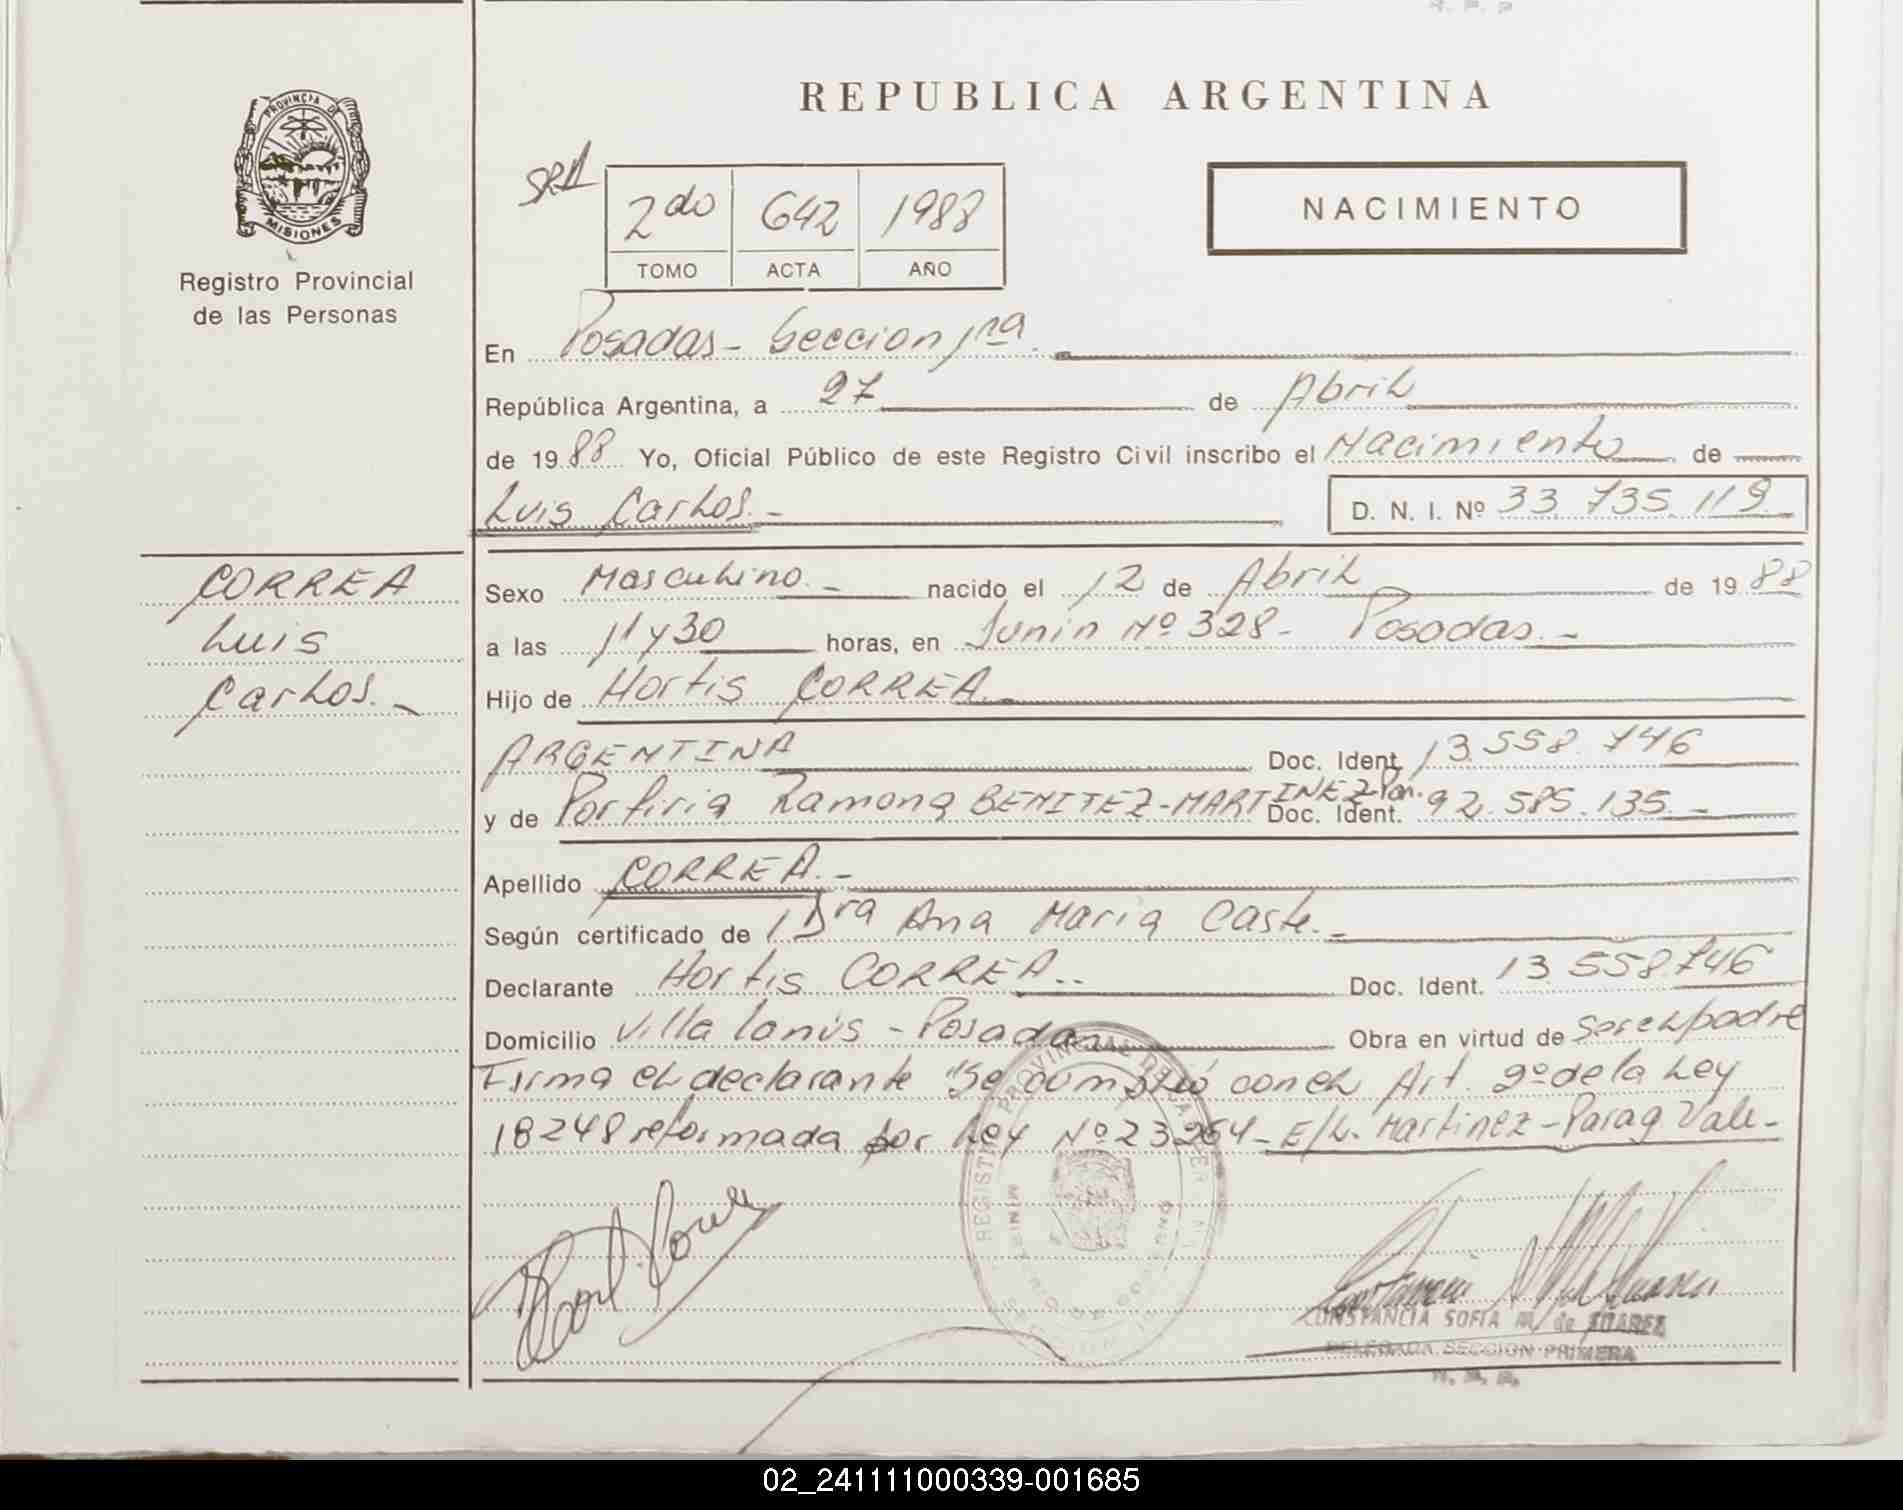 R. P. P.
REPUBLICA ARGENTINA
PROVINCIA DE
MISIONES
Registro Provincial
de las Personas
SRA
2do 642 1988
TOMO ACTA AÑO
NACIMIENTO
En Posadas - Seccion 1ra.
República Argentina, a 27 de Abril
de 1988 Yo, Oficial Público de este Registro Civil inscribo el Nacimiento de
Luis Carlos.- D. N. I. Nº 33 735 119
CORREA
Luis
Carlos.-
Sexo Masculino.- nacido el 12 de Abril de 1988
a las 11 y 30 horas, en Junin Nº 328 - Posadas.-
Hijo de Hortis CORREA
ARGENTINA Doc. Ident. 13.558.746
y de Porfiria Ramona BENITEZ-MARTINEZ Par. Doc. Ident. 92.585.135.-
Apellido CORREA.-
Según certificado de Dra Ana Maria Caste.-
Declarante Hortis CORREA.- Doc. Ident. 13.558.746
Domicilio Villa Lanús - Posadas Obra en virtud de Ser el padre
Firma el declarante "Se cumplió con el Art. 2º de la Ley
18248 reformada por Ley Nº 23264 - E/L. Martinez - Parag Vale.-
REGISTRO PROVINCIAL DE LAS PER
MINISTERIO DE GOBIERNO
CONSTANCIA SOFIA M. de SUAREZ
DELEGADA SECCION PRIMERA
R. P. P.
02_241111000339-001685